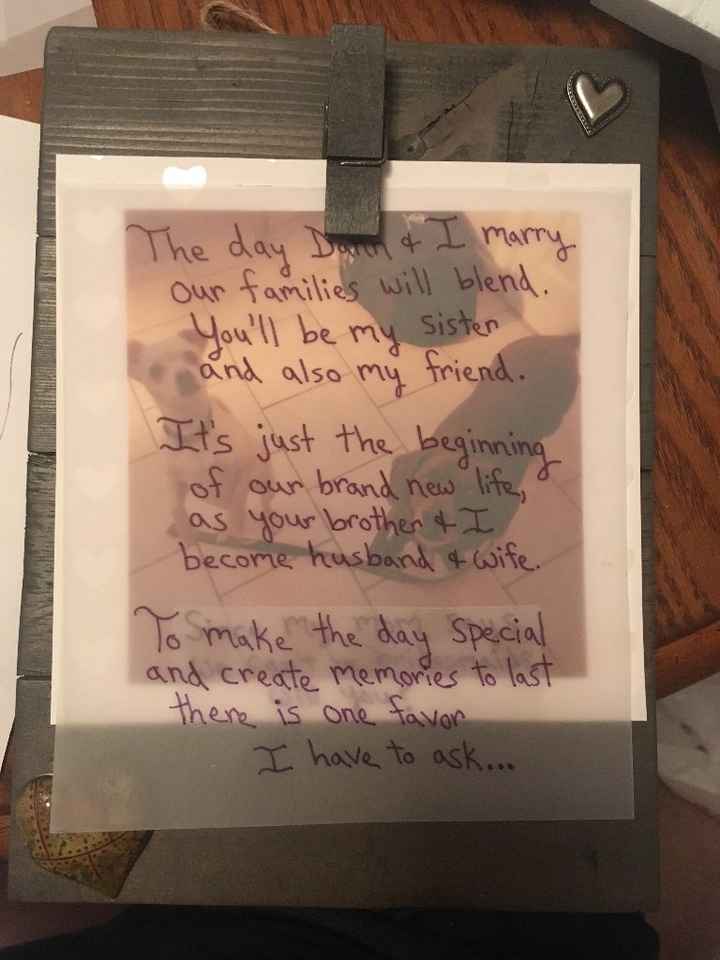 The day Dann & I marry
our families will blend.
You'll be my sister
and also my friend.
It's just the beginning
of our brand new life,
as your brother & I
become husband & wife.
To make the day special
and create memories to last
there is one favor
I have to ask...